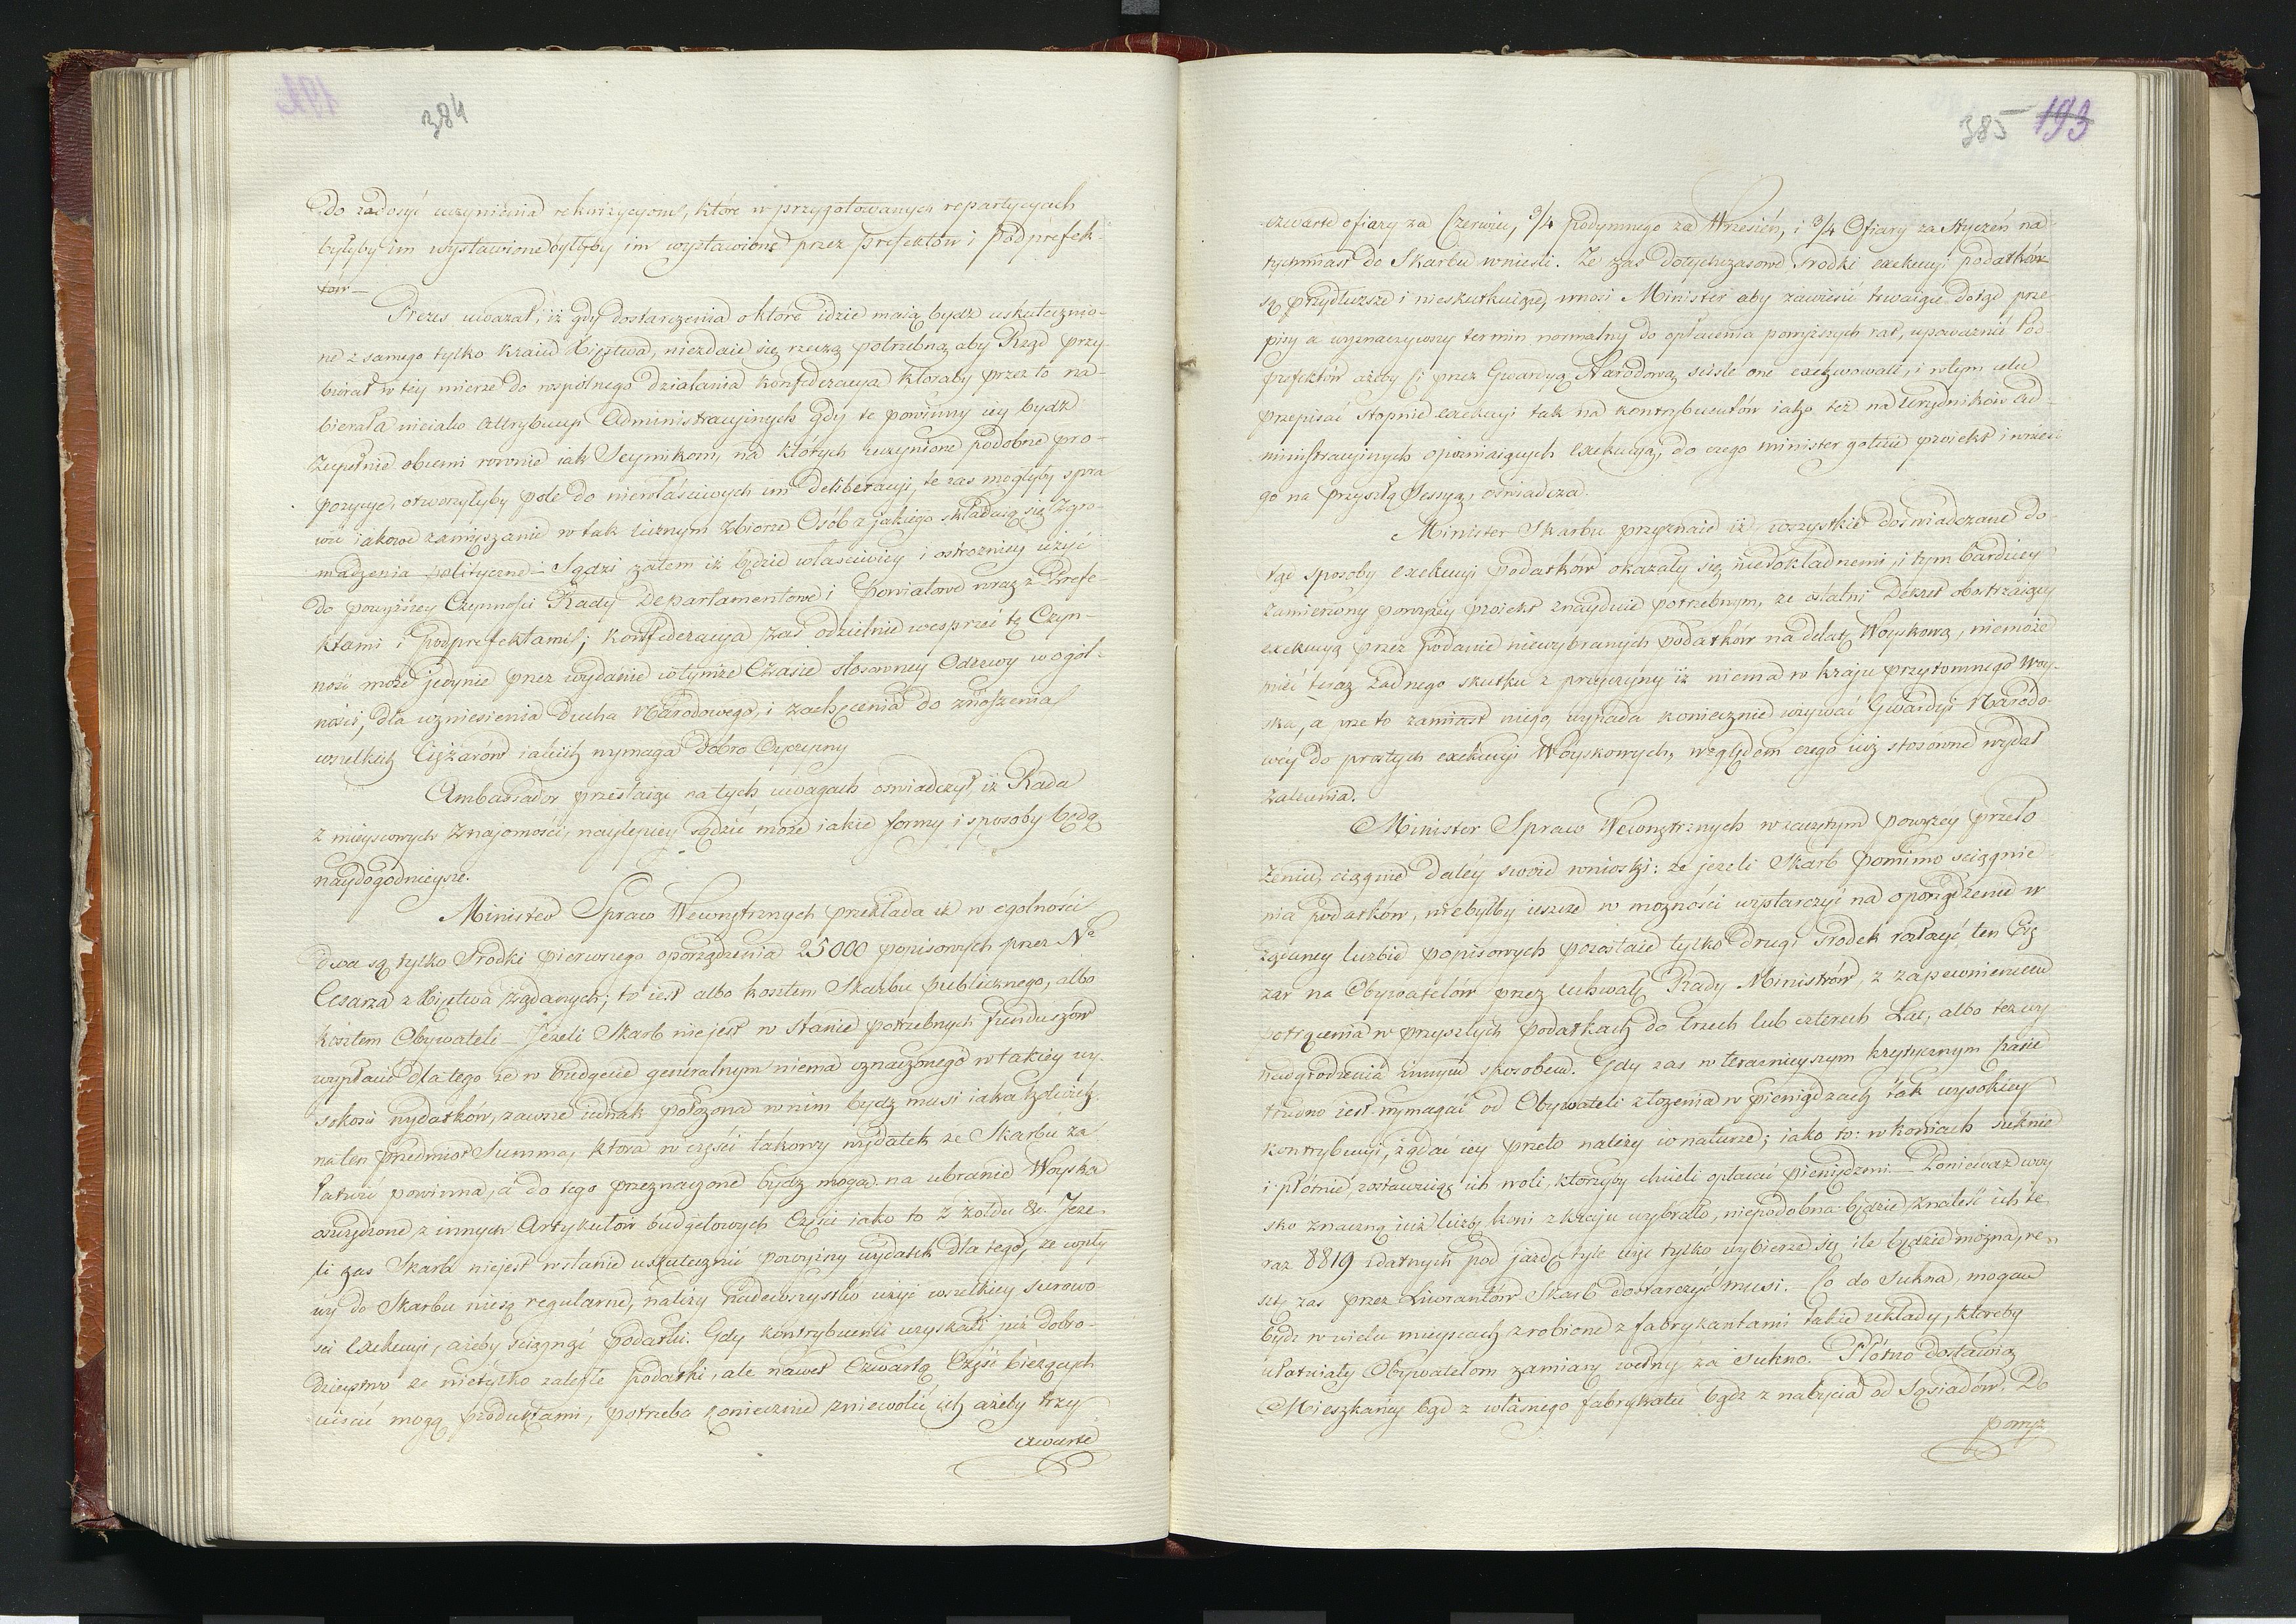 384
do zadosyć uczynienia rekwizycyom, które w przygotowanych repartycyach
byłyby im wystawione byłyby im wystawione przez Prefektów i Podprefek-
tów —
Prezes uważał, iż gdy dostarczenia o które idzie maią bydz uskutecznio-
ne z samego tylko kraiu Xięztwa, niezdaie się rzeczą potrzebną aby Rząd przy-
bierał w tey mierze do wspólnego działania konfederacya któraby przez to na-
bierała nieiako attrybucyi Administracyjnych gdy te powinny iey bydz
zupełnie obcemi rownie iak Seymikom, na których uczynione podobne pro-
pozycye, otworzyłyby pole do niewłaściwych im deliberacyi, te zas mogłyby spra
wić iakowe zamięszanie w tak licznym zbiorze Osób z jakiego składaią się Zgro-
madzenia polityczne — Sądzi zatem iż będzie właściwiey i ostrożniey użyć
do powyższey Czynności Rady Departamentowe i Powiatowe wraz z Prefe-
ktami i Podprefektami; konfederacya zaś odzielnie wesprzeć tę Czyn-
ność może jedynie przez wydanie w tymże Czasie stosowney Odezwy w ogól-
ności, dla wzniesienia Ducha Narodowego, i zachęcenia do znoszenia
wszelkich Ciężarów iakich wymaga dobro Oyczyzny
Ambassador przestaiąc na tych uwagach oswiadczył, iż Rada
z mieyscowych znajomości, naylepiey sądzić może iakie formy i sposoby będą
naydogodnieysze.
Minister Spraw Wewnętrznych przekłada iż w ogolności
dwa są tylko środki pierwszego oporządzenia 25000 popisowych przez Nº
Cesarza z Xięztwa żądanych; to iest albo kosztem Skarbu publicznego, albo
kosztem Obywateli — Jeżeli Skarb nie jest w stanie potrzebnych funduszów
wypłacić dla tego że w budgecie generalnym niema oznaczonego w takiey wy-
sokości wydatków, zawsze iednak położona w nim bydz musi iaka kolwiek
na ten przedmiot Summa, która w części takowy wydatek ze Skarbu za
łatwić powinna, a do tego przeznaczone bydz mogą na ubranie Woyska
oszczędzone z innych Artykułów budgetowych Części iako to z żołdu &c. Jeże-
li zas Skarb niejest w stanie uskutecznić powyższy wydatek dla tego, ze wpły
wy do Skarbu niesą regularne, należy nadewszystko użyć wszelkiey surowo
ści exekucyi, ażeby sciągnąć podatki. Gdy kontrybuenci uzyskali już dobro-
dzieystwo że nietylko zaległe podatki, ale nawet Czwartą Część bieżących
uiścić mogą produktami, potrzeba koniecznie zniewolić ich ażeby trzy
czwarte
385 193
czwarte ofiary za Czerwiec, 3/4 podymnego za Wrzesień, i 3/4 Ofiary za Styczeń na-
tychmiast do Skarbu wnieśli. Ze zas dotychczasowe środki exekucyi podatków
są przydłuższe i nieskutkuiące, wnosi Minister aby zawiesić trwaiące dotąd prze
pisy a wyznaczywszy termin normalny do opłacenia powyższych rat, upoważnić Pod-
prefektów ażeby ci przez Gwardyą Narodową ściśle one exekwowali, i w tym celu
przepisać stopnie exekucyi tak na kontrybuentów iako też na Urzędników Ad-
ministracyjnych opózniaiących exekucyą, do czego minister gotuie projekt i wnieść
go na przyszłą Sessyą, oświadcza.
Minister Skarbu przyznaie iż wszystkie doświadczane do-
tąd sposoby exekucyi podatków okazały się niedokładnemi, i tym bardziey
zamierzony powyżey projekt znayduie potrzebnym, ze ostatni Dekret obostrzaiący
exekucyą przez podanie niewybranych podatków na delatę Woyskową, niemoże
mieć teraz żadnego skutku z przyczyny iż niema w kraju przytomnego Woy-
ska, a prze to zamiast niego wypada koniecznie używać Gwardyi Narodo-
wey do prostych exekucyi Woyskowych, względem czego już stosowne wydał
zalecenia.
Minister Spraw Wewnętrznych w zaczętym powyżey przeło-
żeniu, ciągnie daley swoie wnioski: że jeżeli Skarb pomimo sciągnie-
nia podatków, niebyłby ieszcze w możności wystarczyć na oporządzenie w
żądaney liczbie popisowych pozostaie tylko drugi środek rozłożyć ten Cię
żar na Obywatelów przez uchwałę Rady Ministrów, z zapewnieniem
potrącenia w przyszłych podatkach do trzech lub czterech Lat, albo też wy
nadgrodzenia innym sposobem. Gdy zas w teraznieyszym krytycznym Czasie
trudno iest wymagać od Obywateli złożenia w pieniądzach tak wysokiey
kontrybucyi, żądać iey przeto należy w naturze; iako to: w koniach suknie
i płótnie, zostawuiąc ich woli, którzyby chcieli opłacać pieniędzmi — Ponieważ woy
sko znaczną iuż liczbę koni z kraju wybrało, niepodobna będzie znaleść ich te
raz 8819 zdatnych pod jazdę tyle więc tylko wybierze się ile będzie można, re-
sztę zas przez Liwerantów Skarb dostarczyć musi. Co do Sukna, mogą
bydz w wielu mieyscach zrobione z fabrykantami takie układy, któreby
ułatwiały Obywatelom zamiany wełny za Sukno. — Płótno dostawią
Mieszkańcy bądz z własnego fabrykatu bądz z nabycia od Sąsiadów. Do
powyż